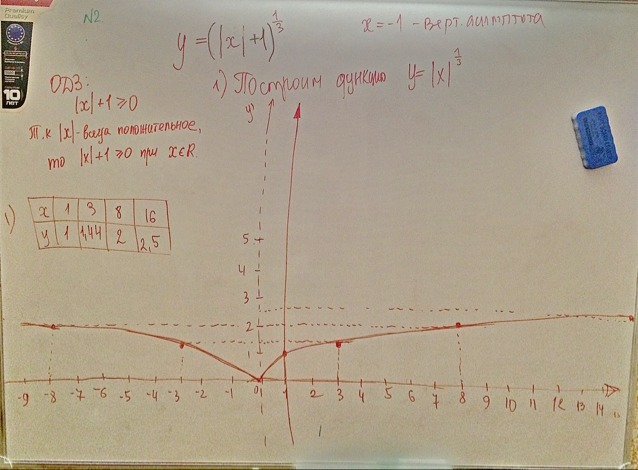 Premium
Quality
10
ЛЕТ
N2
y = (|x|+1)^{1/3}
x = -1 - верт. асимптота
ОДЗ:
|x|+1 ≥ 0
т.к |x| - всегда положительное,
то |x|+1 ≥ 0 при x∈R.
1) Построим функцию y = |x|^{1/3}
1)
x 1 3 8 16
y 1 1,44 2 2,5
y'
5
4
3
2
1
-9 -8 -7 -6 -5 -4 -3 -2 -1 0 1 2 3 4 5 6 7 8 9 10 11 12 13 14